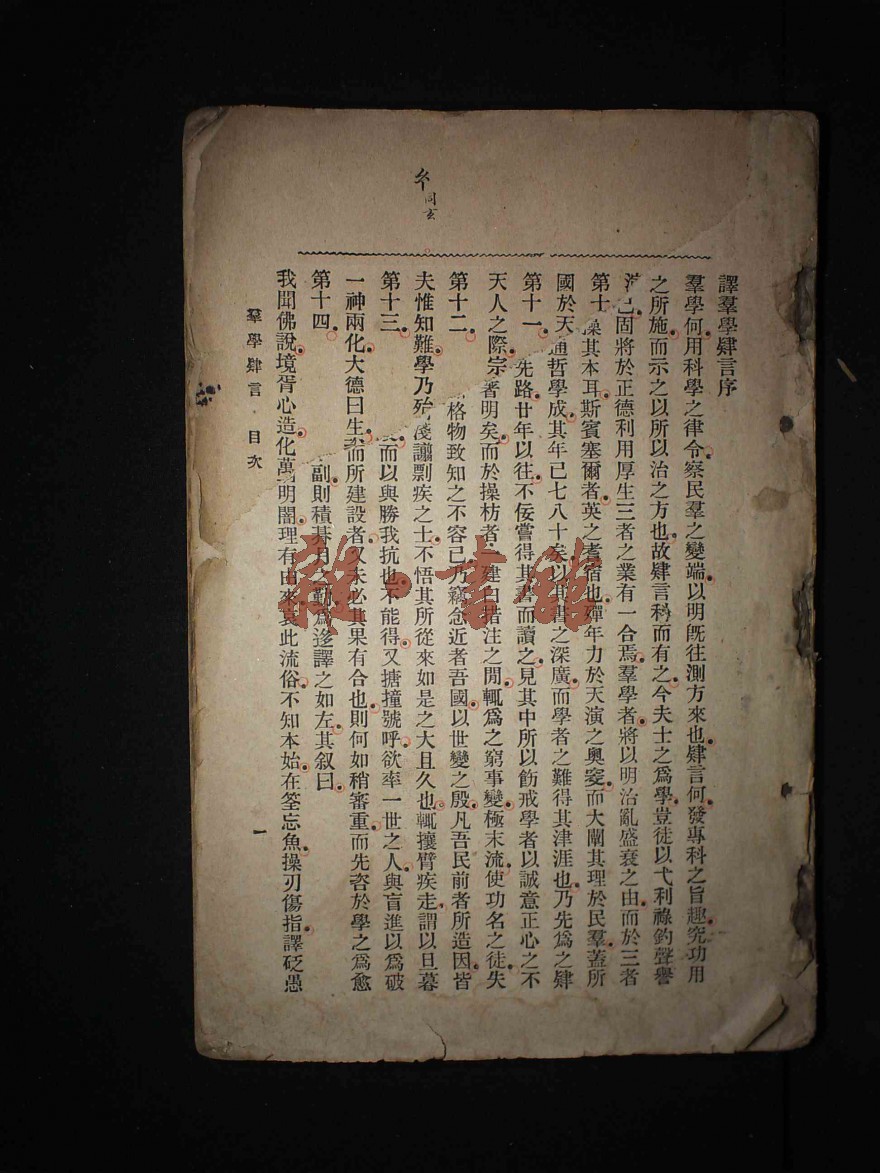 同玄
譯羣學肄言序
羣學何用科學之律令察民羣之變端以明旣往測方來也肄言何發專科之旨趣究功用
之所施而示之以所以治之方也故肄言科而有之今夫士之爲學豈徒以弋利祿釣聲譽
已固將於正德利用厚生三者之業有一合焉羣學者將以明治亂盛衰之由而於三者
第十 操其本耳斯賓塞爾者英之耆宿也殫年力於天演之奧窔而大闡其理於民羣蓋所
國於天 通哲學成其年已七八十矣以其書之深廣而學者之難得其津涯也乃先爲之肄
第十一 先路廿年以往不佞嘗得其書而讀之見其中所以飭戒學者以誠意正心之不
天人之際宗 著明矣而於操枋者 建白措注之閒輒爲之窮事變極末流使功名之徒失
第十二 格物致知之不容已乃竊念近者吾國以世變之殷凡吾民前者所造因皆
夫惟知難學乃殆 淺譾剽疾之士不悟其所從來如是之大且久也輒攘臂疾走謂以旦暮
第十三 而以與勝我抗也不能得又搪撞號呼欲率一世之人與盲進以爲破
一神兩化大德曰生 而所建設者又未必其果有合也則何如稍審重而先咨於學之爲愈
第十四 副則積朞月之勤爲迻譯之如左其叙曰
我聞佛說境胥心造化萬 明闇理有由來哀此流俗不知本始在筌忘魚操刃傷指譯砭愚
羣學肄言 目次 一
雜·書館